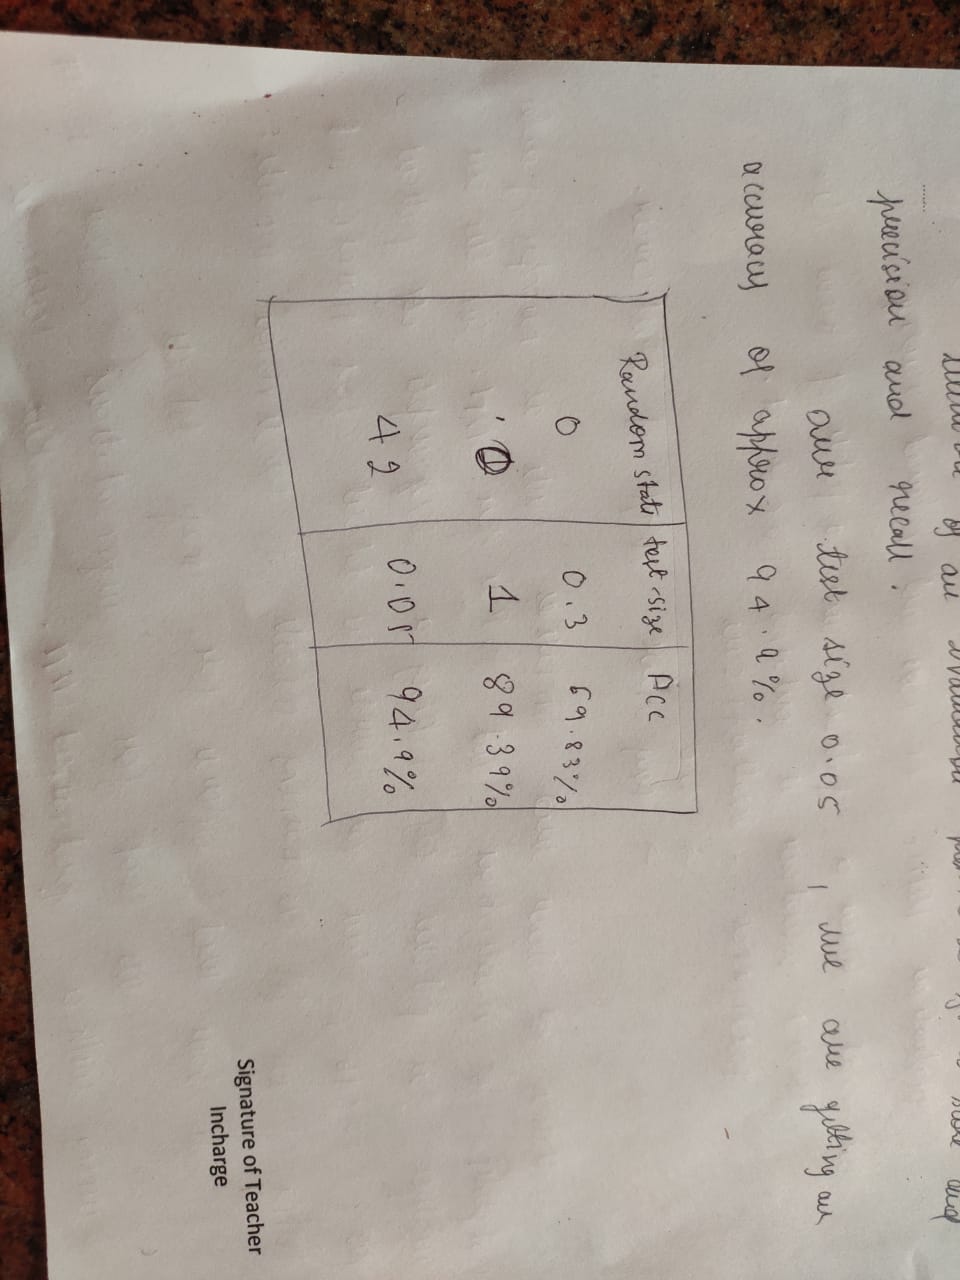 of an
precision and recall.
our test size 0.05, we are getting an
accuracy of approx 94.9%.
Random state test-size Acc
0 0.3 69.83%
1 1 89.39%
42 0.05 94.9%
Signature of Teacher
Incharge